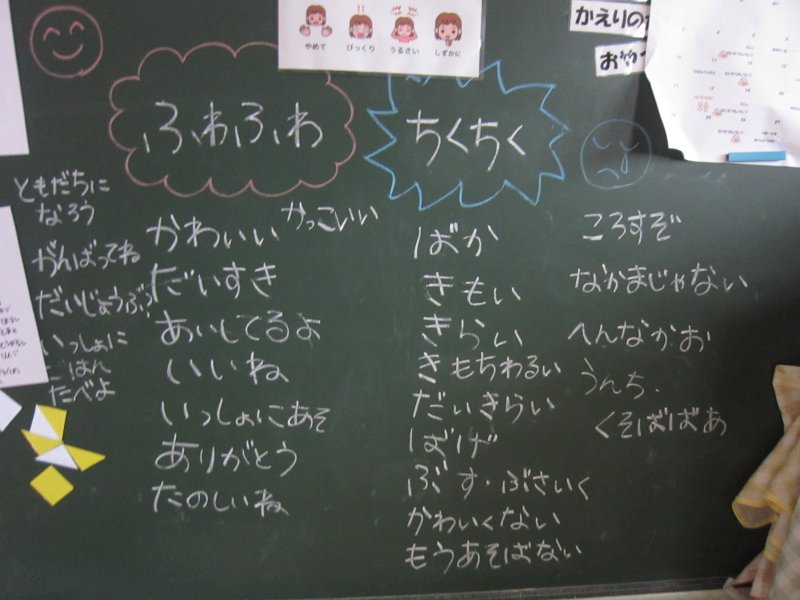 やめて
びっくり
うるさい
しずかに
かえりの
ふわふわ
ちくちく
ともだちに
なろう
がんばってね
だいじょうぶ?
いっしょに
ごはん
たべよ
かわいい
かっこいい
だいすき
あいしてるよ
いいね
いっしょにあそ
ありがとう
たのしいね
ばか
きもい
きらい
きもちわるい
だいきらい
ばげ
ぶす・ぶさいく
かわいくない
もうあそばない
ころすぞ
なかまじゃない
へんなかお
うんち・
くそばばあ